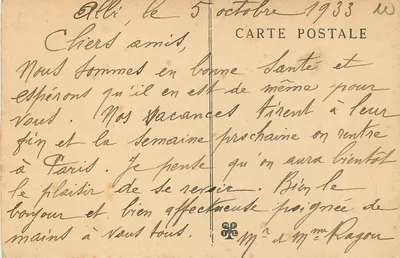 Alli, le 5 octobre 1933
CARTE POSTALE
Chers amis,
Nous sommes en bonne santé et
espérons qu'il en est de même pour
vous. Nos vacances tirent à leur
fin et la semaine prochaine on rentre
à Paris. Je pense qu'on aura bientôt
le plaisir de se revoir. Bien le
bonjour et bien affectueuse poignée de
mains à vous tous.
Mr et Mme Ragou